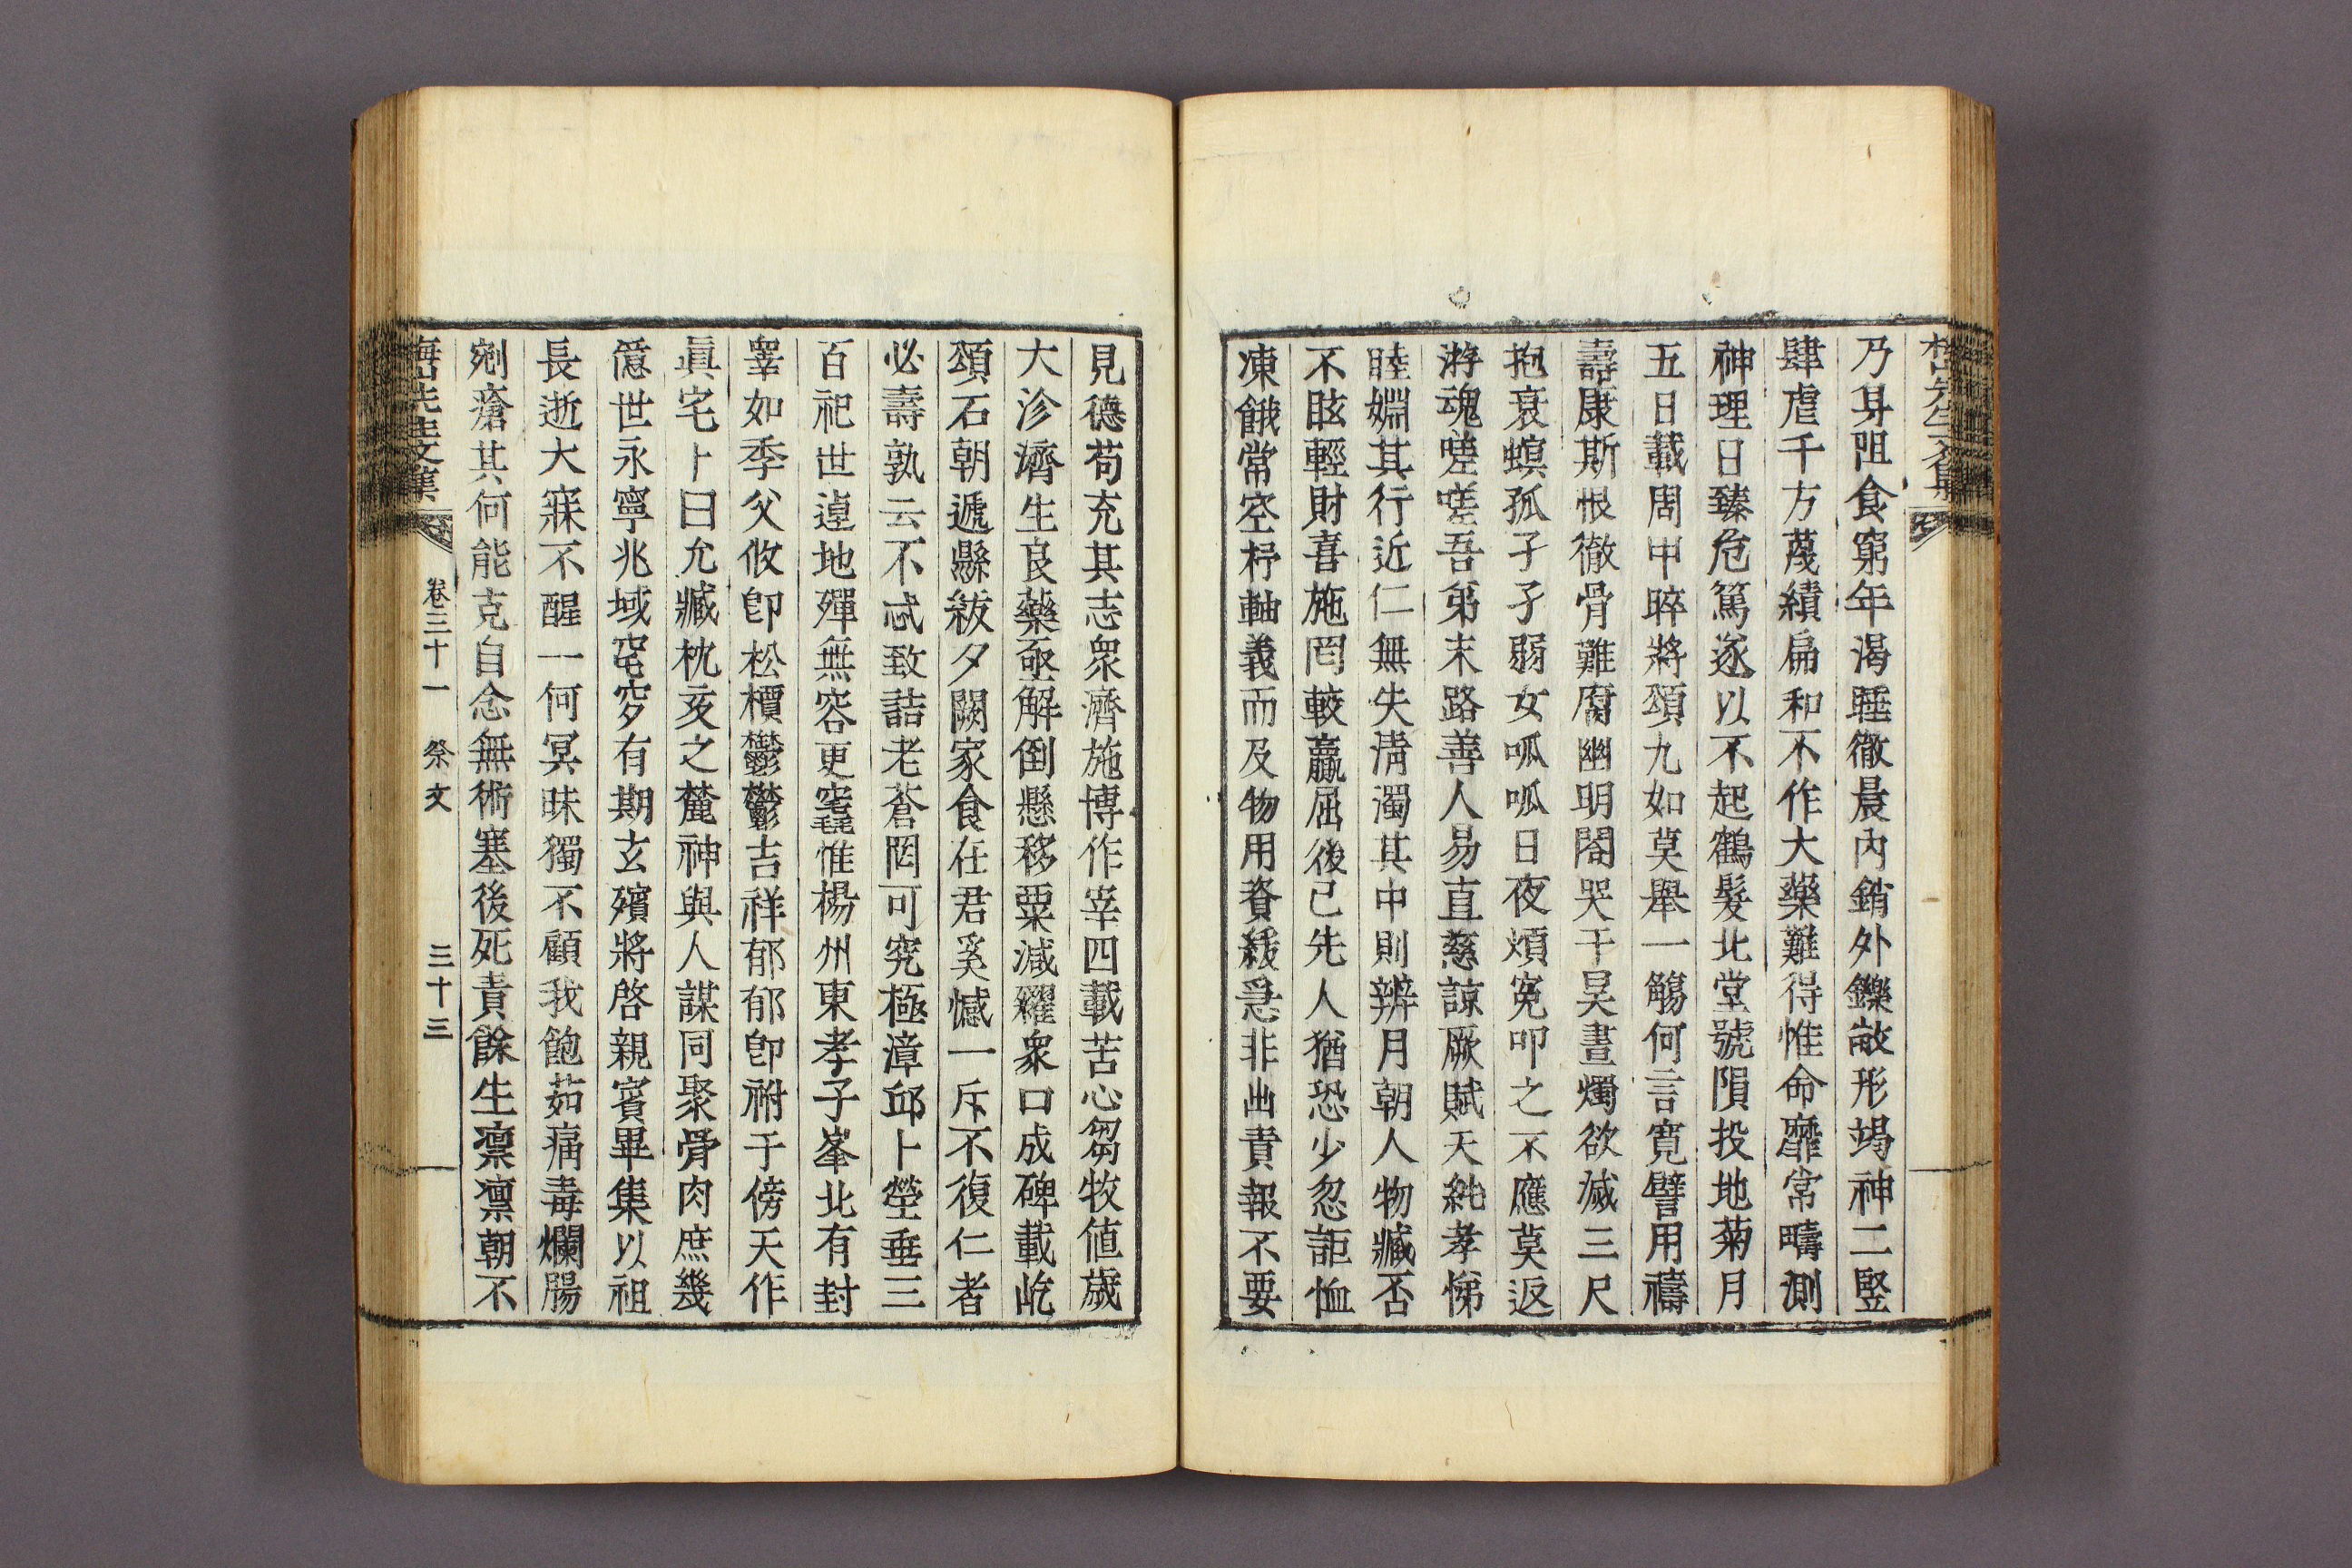 乃身阻食窮年渴睡徹晨內銷外鑠敲形竭神二竪
肆虐千方蔑績扁和不作大藥難得惟命靡常疇測
神理日臻危篤遂以不起鶴髮北堂號隕投地菊月
五日載周甲晬將頌九如莫舉一觴何言寬譬用禱
壽康斯恨徹骨難腐幽明閣哭干昊晝燭欲滅三尺
抱衰螟孤孑孑弱女呱呱日夜煩寃叩之不應莫返
游魂嗟嗟吾弟末路善人易直慈諒厥賦天純孝悌
睦婣其行近仁無失淸濁其中則辨月朝人物臧否
不眩輕財喜施罔較贏屈後己先人猶恐少忽詎恤
凍餓常空杼軸義而及物用資緩急非出責報不要
見德苟充其志衆濟施博作宰四載苦心芻牧値歲
大沴濟生良藥亟解倒懸移粟減糴衆口成碑載屹
頌石朝遞縣紱夕闕家食在君奚憾一斥不復仁者
必壽孰云不忒致詰老蒼罔可究極漳邱卜塋垂三
百祀世遑地殫無容更窆惟楊州東孝子峯北有封
睪如季父攸卽松檟鬱鬱吉祥郁郁卽祔于傍天作
眞宅卜曰允臧枕亥之麓神與人謀同聚骨肉庶幾
億世永寧兆域窀穸有期玄殯將啓親賓畢集以祖
長逝大寐不醒一何冥昧獨不顧我飽茹痛毒爛腸
剜瘡其何能克自念無術塞後死責餘生凛凛朝不
梅山先生文集 卷三十一 祭文 三十三